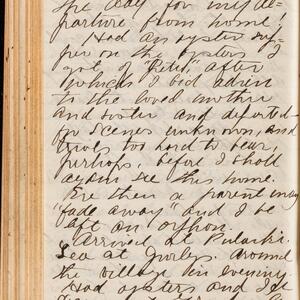 the day for my de-
parture from home!
Had an oyster sup-
per on the oysters I
got of "Pete," after
which I bid adieu
to the loved mother
and sister and departed
for scenes unknown, and
trials too hard to bear,
perhaps, before I shall
again see this home.
Ere then a parent may
"fade away" and I be
left an orphan.
Arrived at Pulaski.
Tea at Gurley's. Around
the village in evening.
Had oysters and I